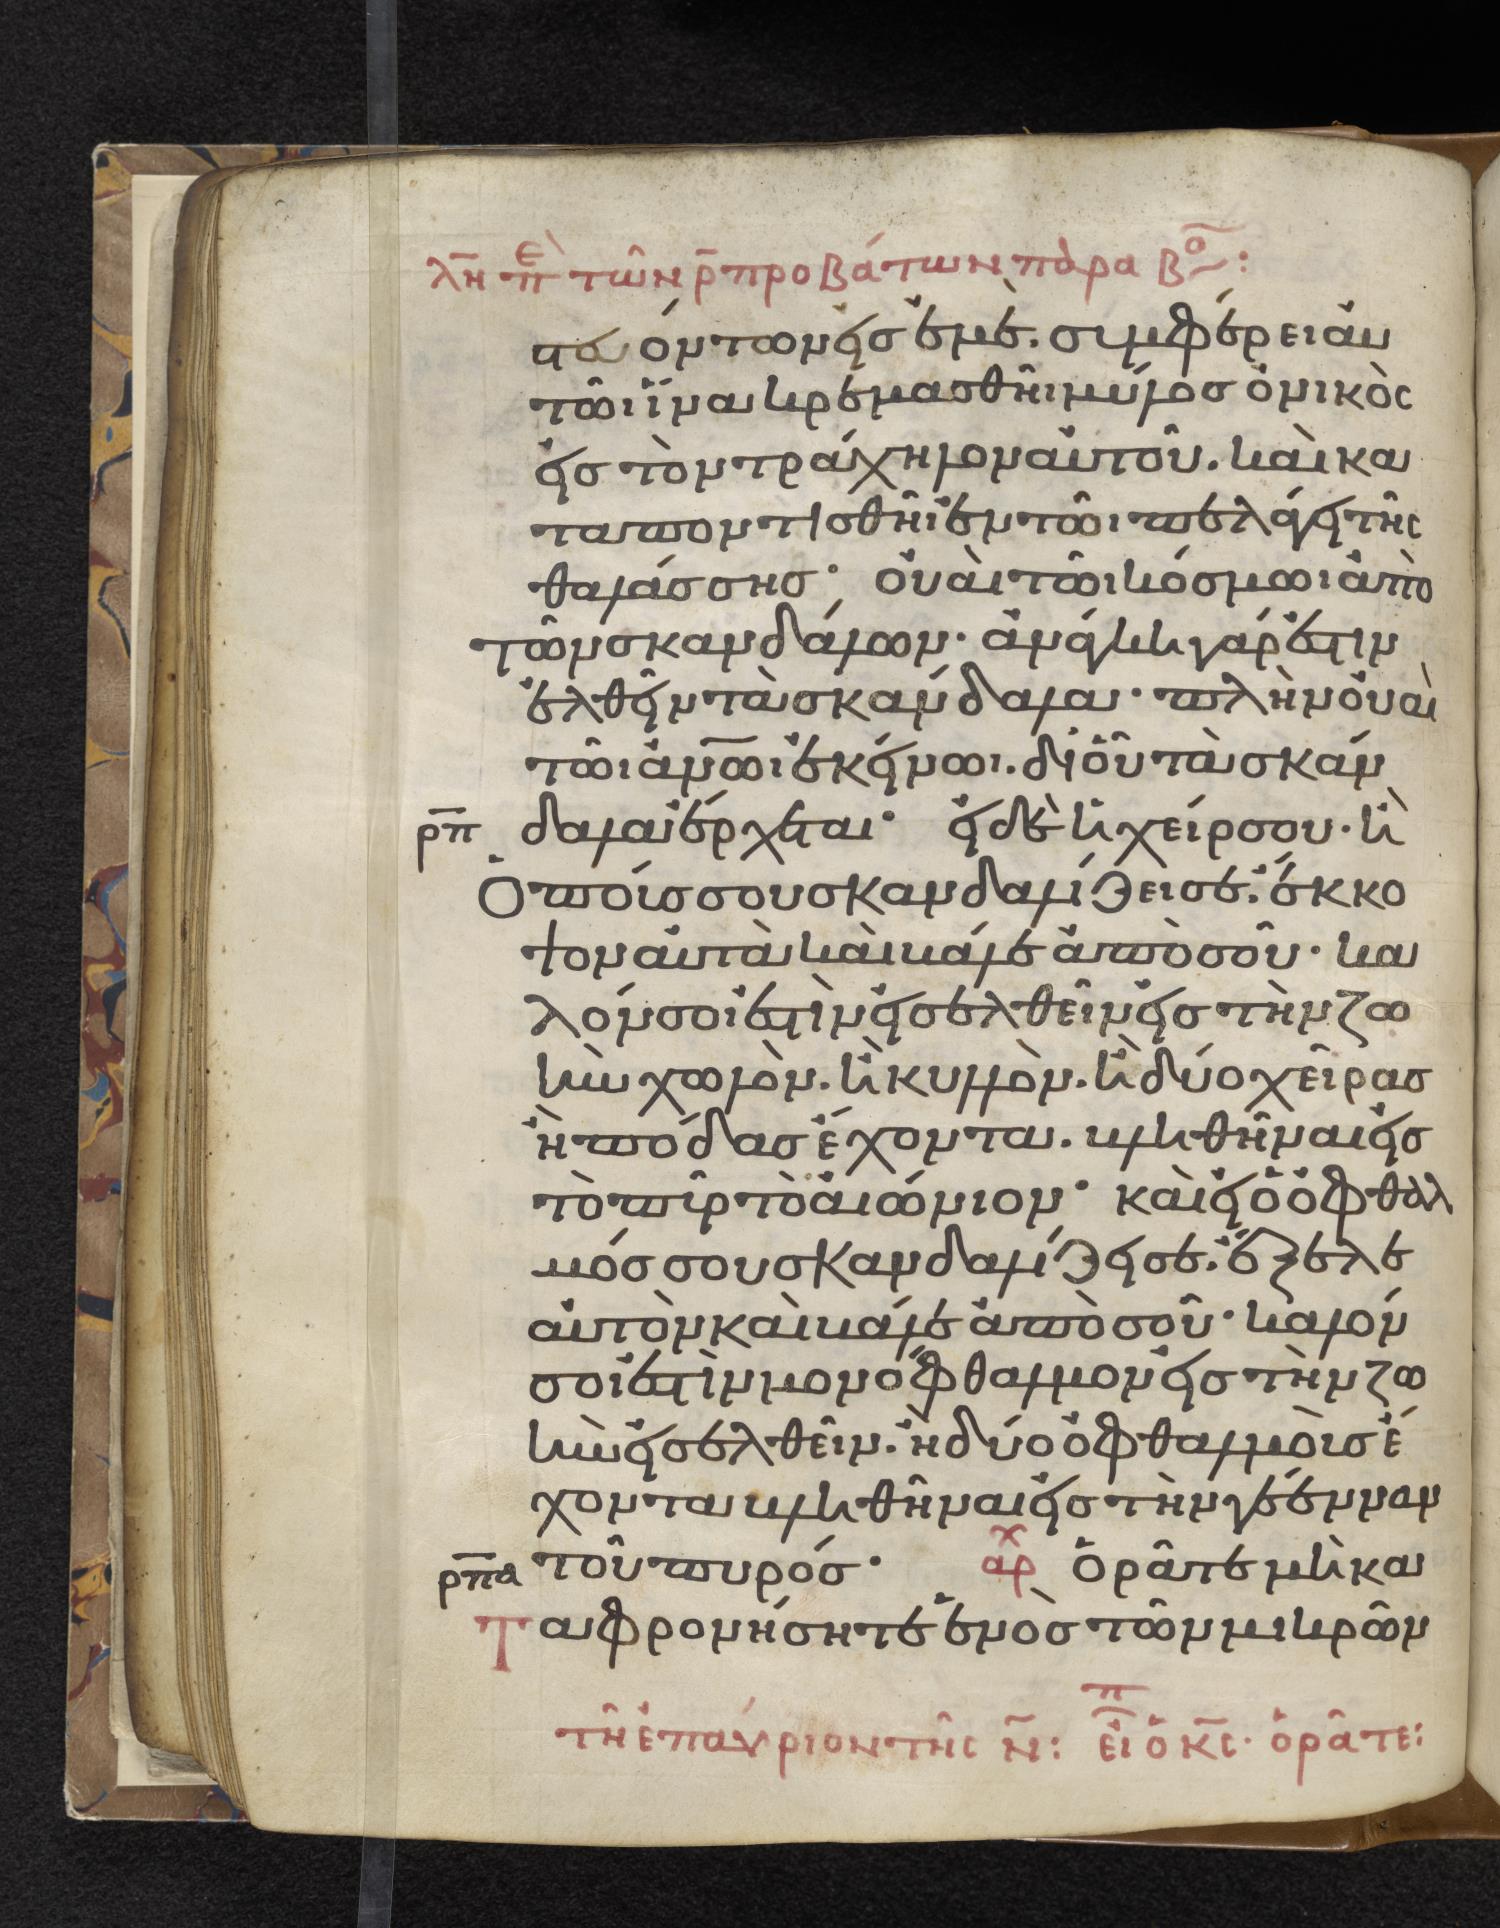 λη̅ πὲ τῶν ρ̅ προβάτων πὰρα βο͂:
τευόντων εἰσ ἐμὲ. συμφέρει ἀυ
τῶι ἵνα κρεμασθῆι μύλοσ ὀνικὸς
εἰσ τὸν τράχηλον αὐτοῦ. καὶ κα
ταποντισθῆι ἐν τῶι πελάγει τῆς
θαλάσσησ· οὐαὶ τῶι κόσμωι ἀπὸ
τῶν σκανδάλων· ἀνάγκη γάρ ἐστιν
ἐλθεῖν τὰ σκάνδαλα· πλὴν οὐαὶ
τῶι ἀν̅ω̅ι ἐκείνωι. δι οὗ τὰ σκάν
ρ̅π̅ δαλα ἔρχεται· εἰ δὲ ἡ χείρ σου. ἢ
Ὁ πόυσ σου σκανδαλίζει σε. ἔκκο
ψον αὐτὰ καὶ βάλε ἀπὸ σοῦ· κα
λόν σοι ἐστὶν εἰσελθεῖν εἰσ τὴν ζω
ὴν χωλὸν. ἢ κυλλὸν. ἢ δύο χεῖρασ
ἢ πόδασ ἔχοντα. βληθῆναι εἰσ
τὸ πῦρ τὸ αἰώνιον· καὶ εἰ ὁ ὀφθαλ
μόσ σου σκανδαλίζει σε. ἔξελε
αὐτὸν καὶ βάλε ἀπὸ σοῦ· καλόν
σοι ἐστὶν μονόφθαλμον εἰσ τὴν ζω
ὴν εἰσελθεῖν. ἢ δύο ὀφθαλμὸυσ ἔ
χοντα βληθῆναι εἰσ τὴν γέενναν
ρ̅π̅α τοῦ πυρόσ· αρχ Ὁρᾶτε μὴ κα
Ταφρονήσητε ἑνὸσ τῶν μικρῶν
τῆ ἐπάυριον τῆς ν̅: εἶπ ὁ κ̅ς· ὁρᾶτε: